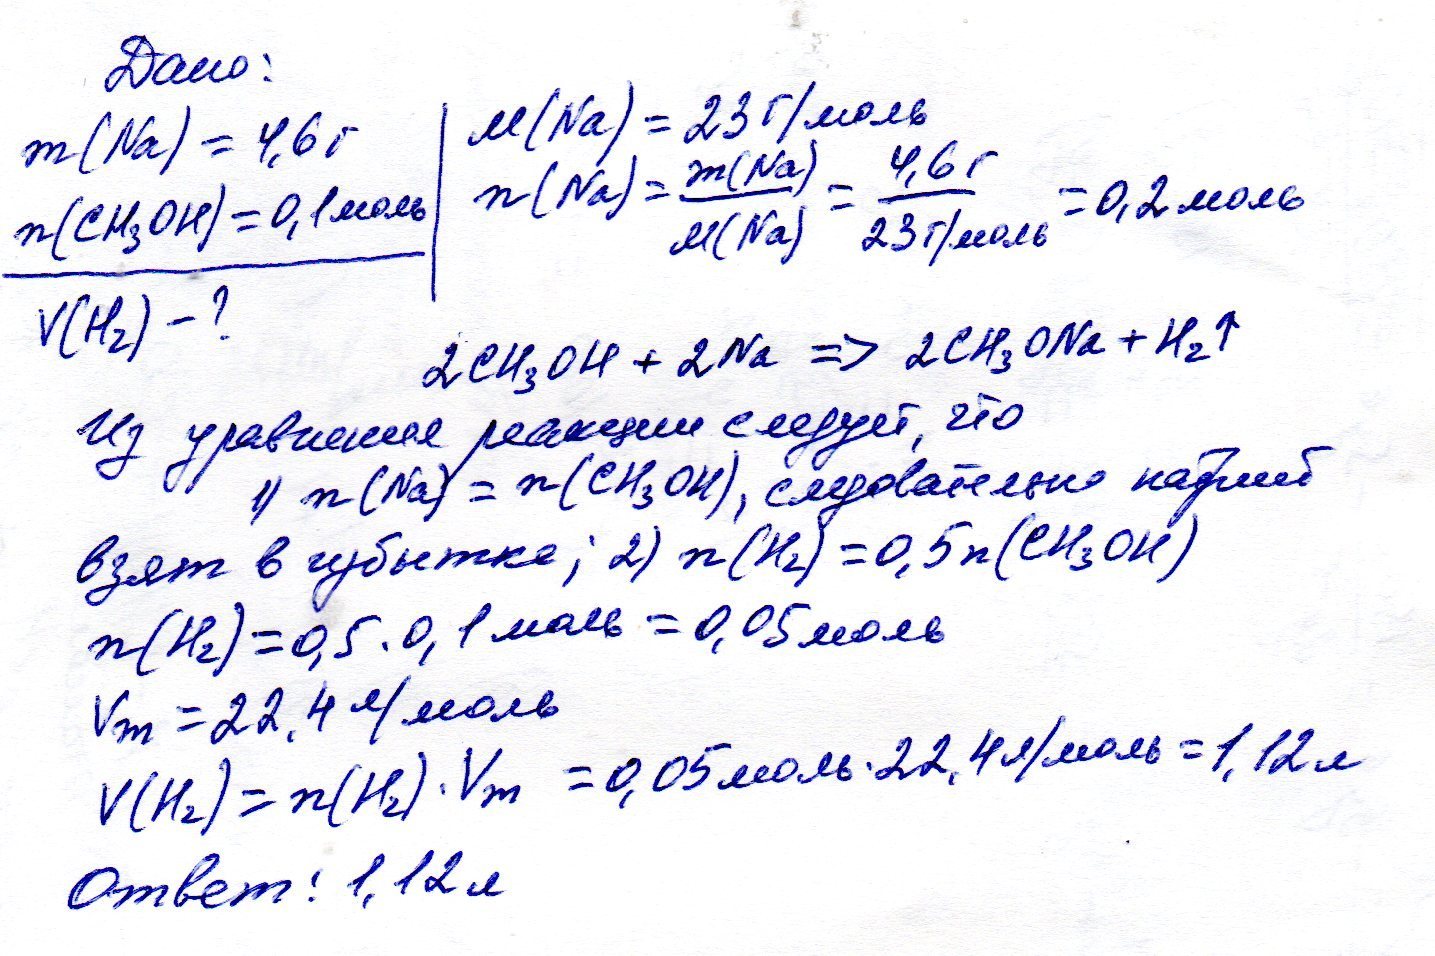 Дано:
m(Na) = 4,6 г
n(CH₃OH) = 0,1 моль
V(H₂) – ?
M(Na) = 23 г/моль
n(Na) = m(Na)/M(Na) = 4,6 г/23 г/моль = 0,2 моль
2CH₃OH + 2Na => 2CH₃ONa + H₂↑
Из уравнения реакции следует, что
1) n(Na) = n(CH₃OH), следовательно натрий
взят в избытке; 2) n(H₂) = 0,5n(CH₃OH)
n(H₂) = 0,5 · 0,1 моль = 0,05 моль
Vm = 22,4 л/моль
V(H₂) = n(H₂) · Vm = 0,05 моль · 22,4 л/моль = 1,12 л
Ответ: 1,12 л